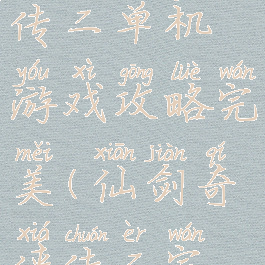 传二单机
yóu xì gōng lüè wán
游戏攻略完
měi xiān jiàn qí
美(仙剑奇
xiá chuán èr wán
侠传二完